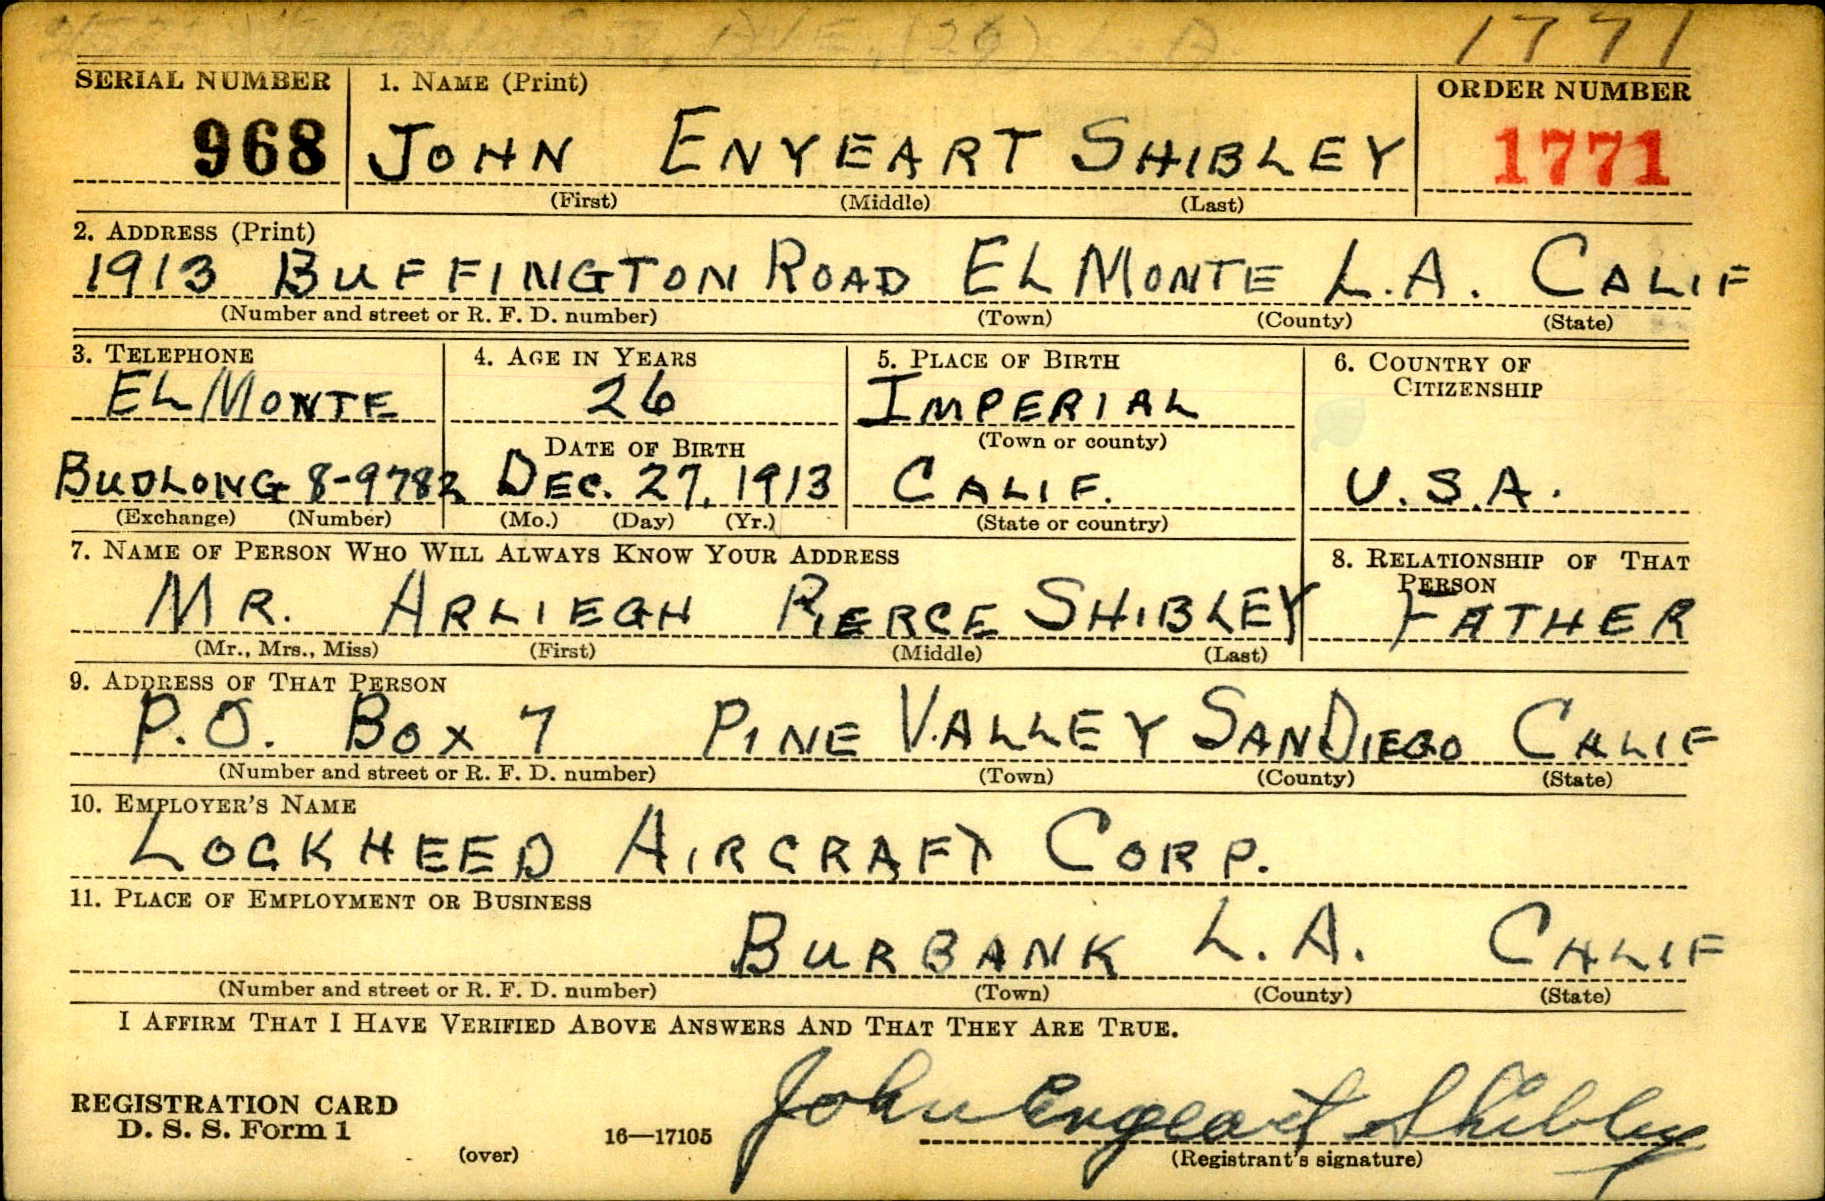 AVE. (26) L A
1771
SERIAL NUMBER 1. NAME (Print) ORDER NUMBER
968 JOHN ENYEART SHIBLEY 1771
(First) (Middle) (Last)
2. ADDRESS (Print)
1913 BUFFINGTON ROAD EL MONTE L.A. CALIF
(Number and street or R. F. D. number) (Town) (County) (State)
3. TELEPHONE 4. AGE IN YEARS 5. PLACE OF BIRTH 6. COUNTRY OF
CITIZENSHIP
EL MONTE 26 IMPERIAL
DATE OF BIRTH (Town or county)
BUDLONG 8-9782 DEC. 27, 1913 CALIF. U.S.A.
(Exchange) (Number) (Mo.) (Day) (Yr.) (State or country)
7. NAME OF PERSON WHO WILL ALWAYS KNOW YOUR ADDRESS 8. RELATIONSHIP OF THAT
PERSON
MR. ARLIEGH PIERCE SHIBLEY FATHER
(Mr., Mrs., Miss) (First) (Middle) (Last)
9. ADDRESS OF THAT PERSON
P.O. BOX 7 PINE VALLEY SAN DIEGO CALIF
(Number and street or R. F. D. number) (Town) (County) (State)
10. EMPLOYER'S NAME
LOCKHEED AIRCRAFT CORP.
11. PLACE OF EMPLOYMENT OR BUSINESS
BURBANK L.A. CALIF
(Number and street or R. F. D. number) (Town) (County) (State)
I AFFIRM THAT I HAVE VERIFIED ABOVE ANSWERS AND THAT THEY ARE TRUE.
John Enyeart Shibley
REGISTRATION CARD
D. S. S. Form 1
(over) 16—17105 (Registrant's signature)